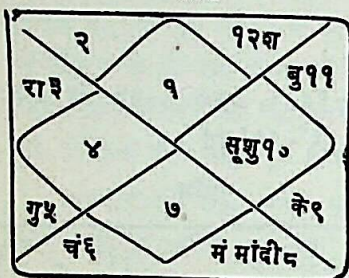 २ १२श
रा३ १ बु११
४ सूशु१०
गु५ ७ के९
चं६ मं मांदी८